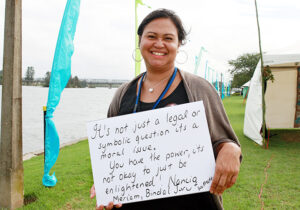 It's not just a legal or
symbolic question its a
moral issue.
You have the power, its
not okay to just be
enlightened, Nancia
Meriam, Bindal Juru woman